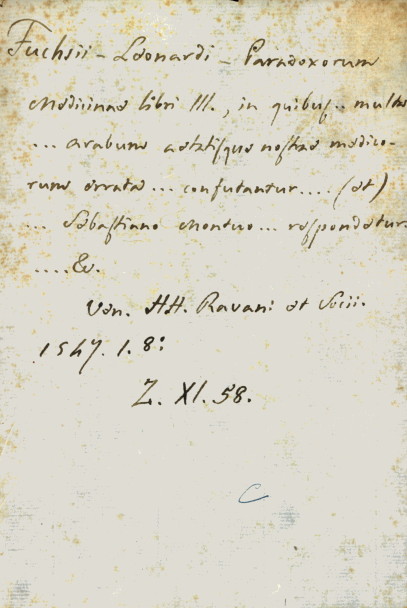 Fuchsii – Leonardi – Paradoxorum
Medicinae libri III., in quibuſ.. multa
... arabum aetatiſque noſtrae medico-
rum errata ... confutantur.... (et)
... Sebaſtiano Montuo ... reſpondetur.
.... &c.
Ven. HH. Ravani et Socii.
1547. 1. 8:
Z. XI. 58.
C